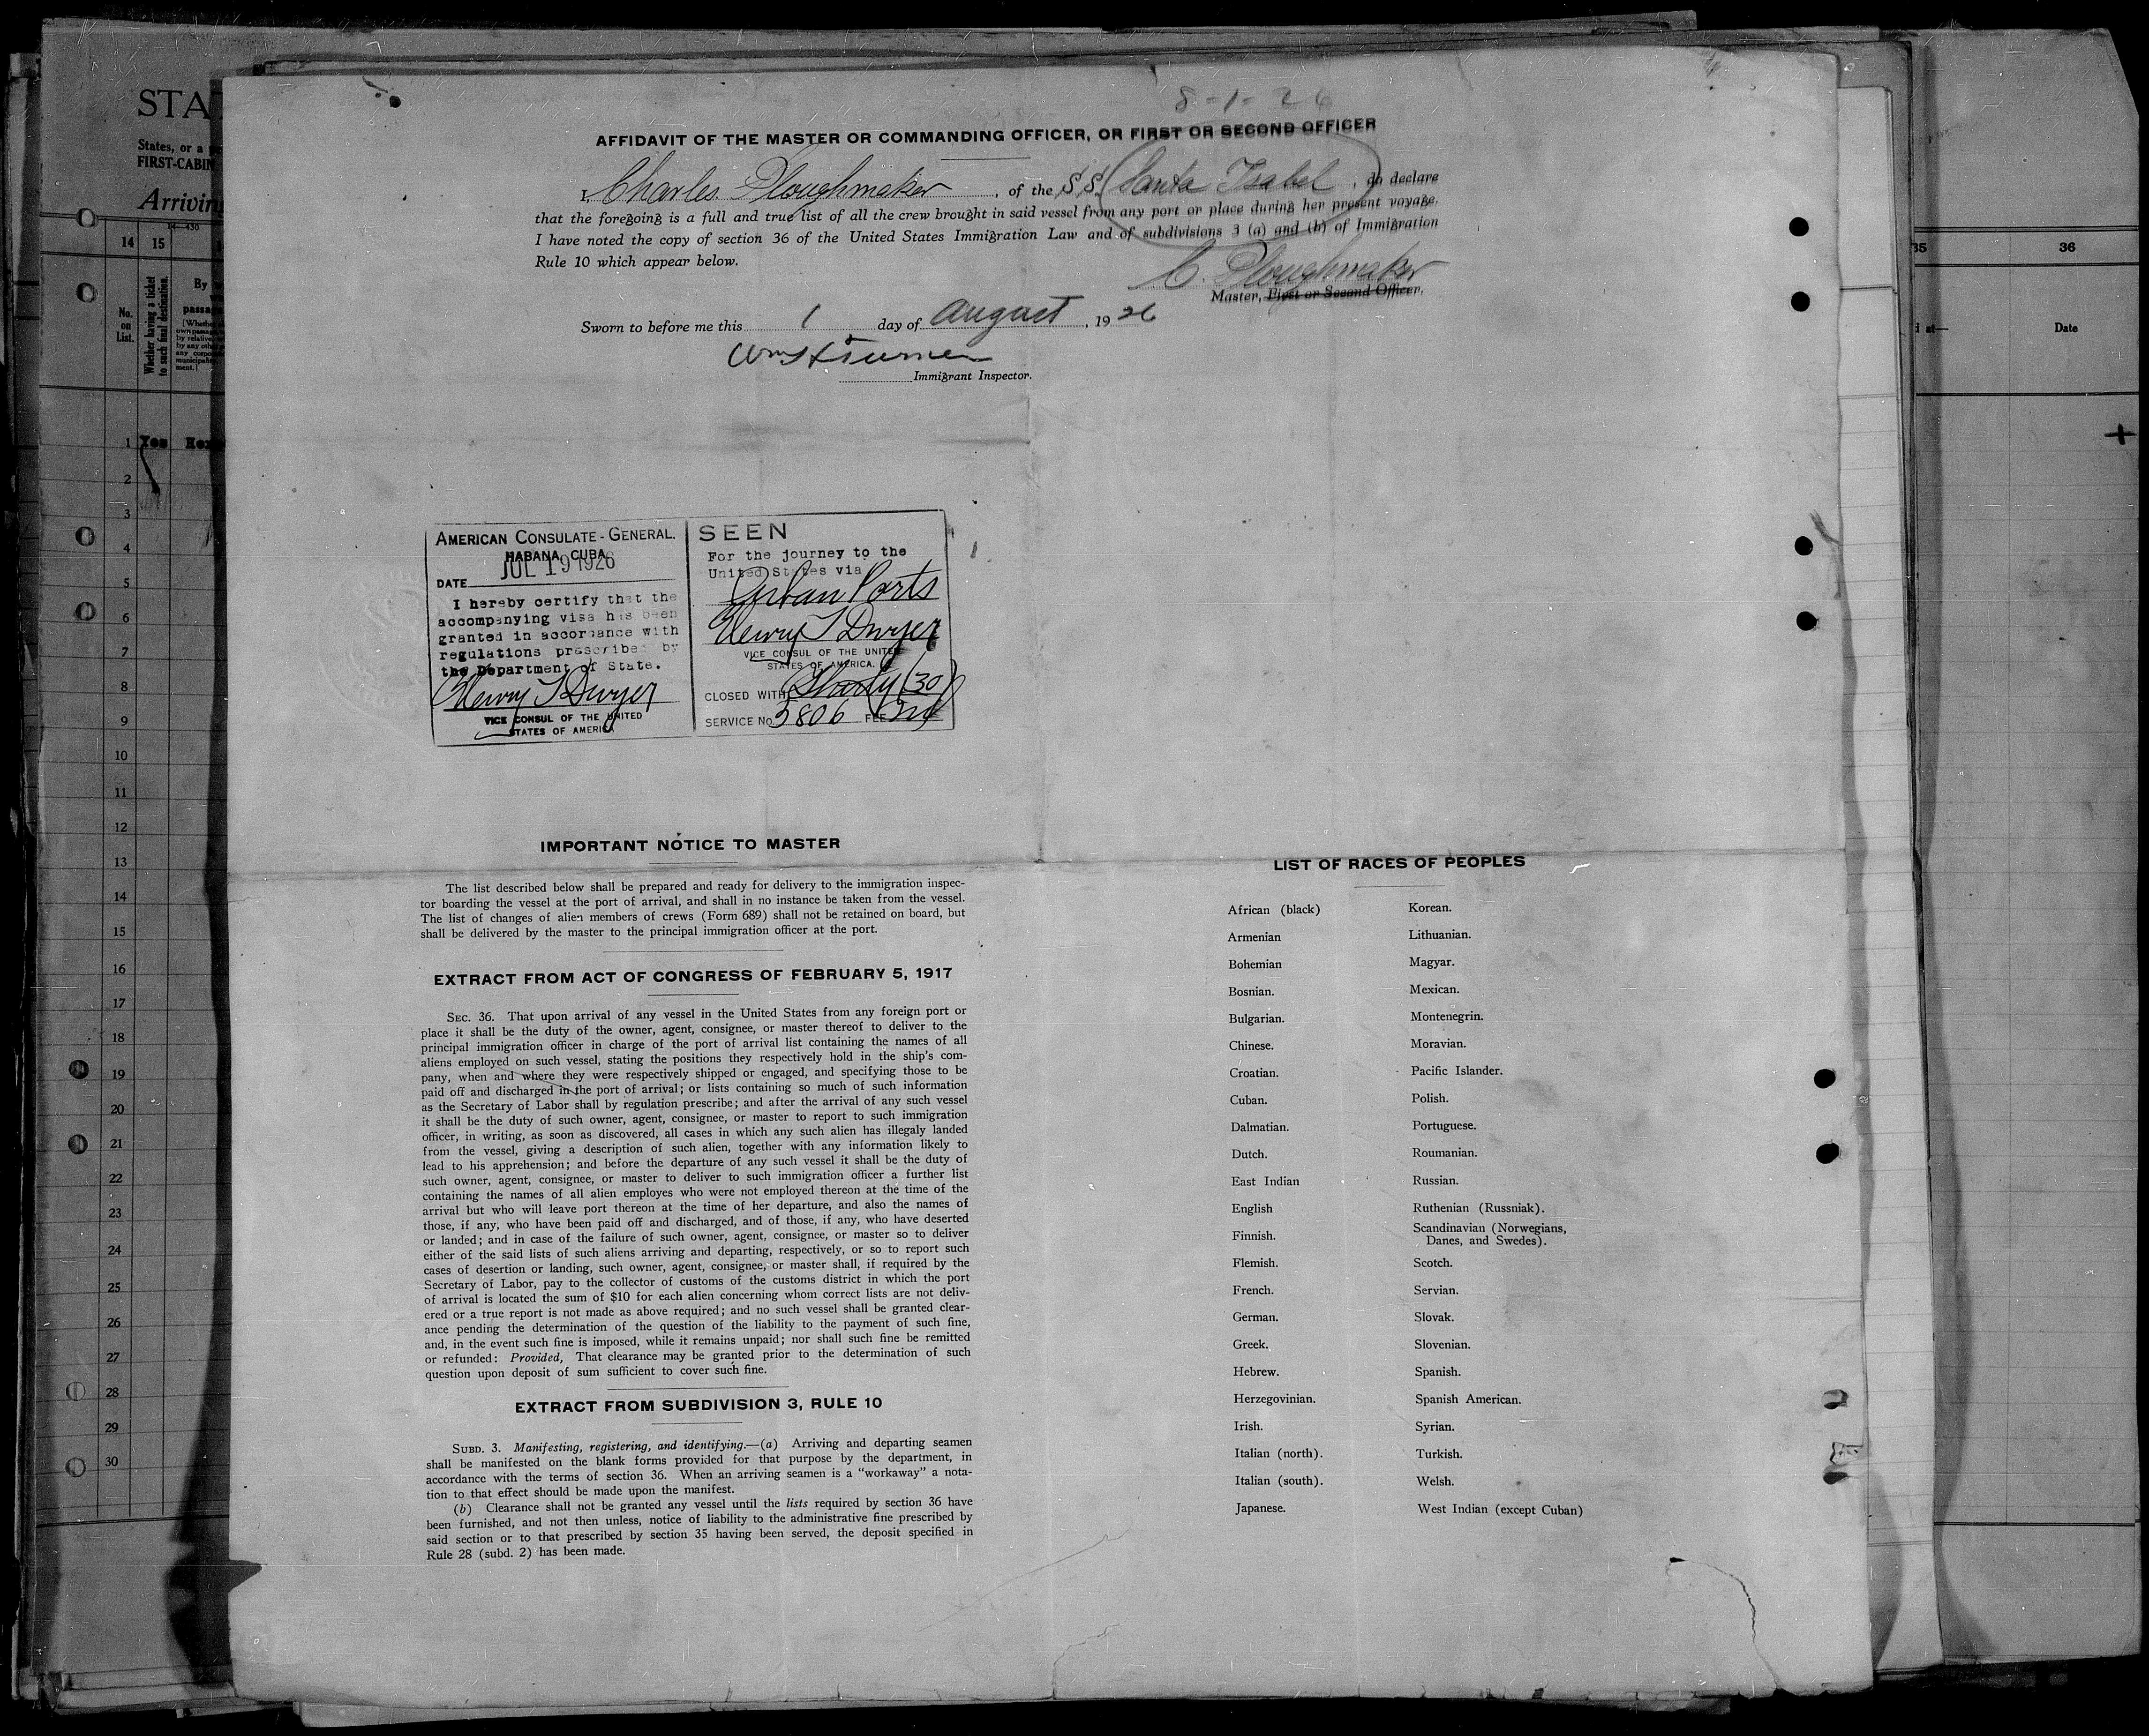 8-1-26
AFFIDAVIT OF THE MASTER OR COMMANDING OFFICER, OR FIRST OR SECOND OFFICER
I, Charles Ploughmaker, of the SS. Santa Isabel, do declare
that the foregoing is a full and true list of all the crew brought in said vessel from any port or place during her present voyage.
I have noted the copy of section 36 of the United States Immigration Law and of subdivisions 3 (a) and (b) of Immigration
Rule 10 which appear below.
C. Ploughmaker
Master, First or Second Officer.
Sworn to before me this 1 day of August, 1926
Immigrant Inspector.
AMERICAN CONSULATE-GENERAL.
HABANA, CUBA
DATE JUL 19 1926
I hereby certify that the
accompanying visa has been
granted in accordance with
regulations prescribed by
the Department of State.
Henry T Dwyer
VICE CONSUL OF THE UNITED
STATES OF AMERICA
SEEN
For the journey to the
United States via
Cuban Ports
Henry T Dwyer
VICE CONSUL OF THE UNITED
STATES OF AMERICA.
CLOSED WITH (30)
SERVICE No. 5806 FEE
IMPORTANT NOTICE TO MASTER
The list described below shall be prepared and ready for delivery to the immigration inspec-
tor boarding the vessel at the port of arrival, and shall in no instance be taken from the vessel.
The list of changes of alien members of crews (Form 689) shall not be retained on board, but
shall be delivered by the master to the principal immigration officer at the port.
EXTRACT FROM ACT OF CONGRESS OF FEBRUARY 5, 1917
SEC. 36. That upon arrival of any vessel in the United States from any foreign port or
place it shall be the duty of the owner, agent, consignee, or master thereof to deliver to the
principal immigration officer in charge of the port of arrival list containing the names of all
aliens employed on such vessel, stating the positions they respectively hold in the ship's com-
pany, when and where they were respectively shipped or engaged, and specifying those to be
paid off and discharged in the port of arrival; or lists containing so much of such information
as the Secretary of Labor shall by regulation prescribe; and after the arrival of any such vessel
it shall be the duty of such owner, agent, consignee, or master to report to such immigration
officer, in writing, as soon as discovered, all cases in which any such alien has illegaly landed
from the vessel, giving a description of such alien, together with any information likely to
lead to his apprehension; and before the departure of any such vessel it shall be the duty of
such owner, agent, consignee, or master to deliver to such immigration officer a further list
containing the names of all alien employes who were not employed thereon at the time of the
arrival but who will leave port thereon at the time of her departure, and also the names of
those, if any, who have been paid off and discharged, and of those, if any, who have deserted
or landed; and in case of the failure of such owner, agent, consignee, or master so to deliver
either of the said lists of such aliens arriving and departing, respectively, or so to report such
cases of desertion or landing, such owner, agent, consignee, or master shall, if required by the
Secretary of Labor, pay to the collector of customs of the customs district in which the port
of arrival is located the sum of $10 for each alien concerning whom correct lists are not deliv-
ered or a true report is not made as above required; and no such vessel shall be granted clear-
ance pending the determination of the question of the liability to the payment of such fine,
and, in the event such fine is imposed, while it remains unpaid; nor shall such fine be remitted
or refunded: Provided, That clearance may be granted prior to the determination of such
question upon deposit of sum sufficient to cover such fine.
EXTRACT FROM SUBDIVISION 3, RULE 10
SUBD. 3. Manifesting, registering, and identifying.—(a) Arriving and departing seamen
shall be manifested on the blank forms provided for that purpose by the department, in
accordance with the terms of section 36. When an arriving seamen is a "workaway" a nota-
tion to that effect should be made upon the manifest.
(b) Clearance shall not be granted any vessel until the lists required by section 36 have
been furnished, and not then unless, notice of liability to the administrative fine prescribed by
said section or to that prescribed by section 35 having been served, the deposit specified in
Rule 28 (subd. 2) has been made.
LIST OF RACES OF PEOPLES
African (black)
Armenian
Bohemian
Bosnian.
Bulgarian.
Chinese.
Croatian.
Cuban.
Dalmatian.
Dutch.
East Indian
English
Finnish.
Flemish.
French.
German.
Greek.
Hebrew.
Herzegovinian.
Irish.
Italian (north).
Italian (south).
Japanese.
Korean.
Lithuanian.
Magyar.
Mexican.
Montenegrin.
Moravian.
Pacific Islander.
Polish.
Portuguese.
Roumanian.
Russian.
Ruthenian (Russniak).
Scandinavian (Norwegians,
Danes, and Swedes).
Scotch.
Servian.
Slovak.
Slovenian.
Spanish.
Spanish American.
Syrian.
Turkish.
Welsh.
West Indian (except Cuban)
STA
States, or a
FIRST-CABIN
Arriving
14 15
No.
on
List.
Whether having a ticket
to such final destination.
By
1 Yes
2
3
4
5
6
7
8
9
10
11
12
13
14
15
16
17
18
19
20
21
22
23
24
25
26
27
28
29
30
35
36
Date